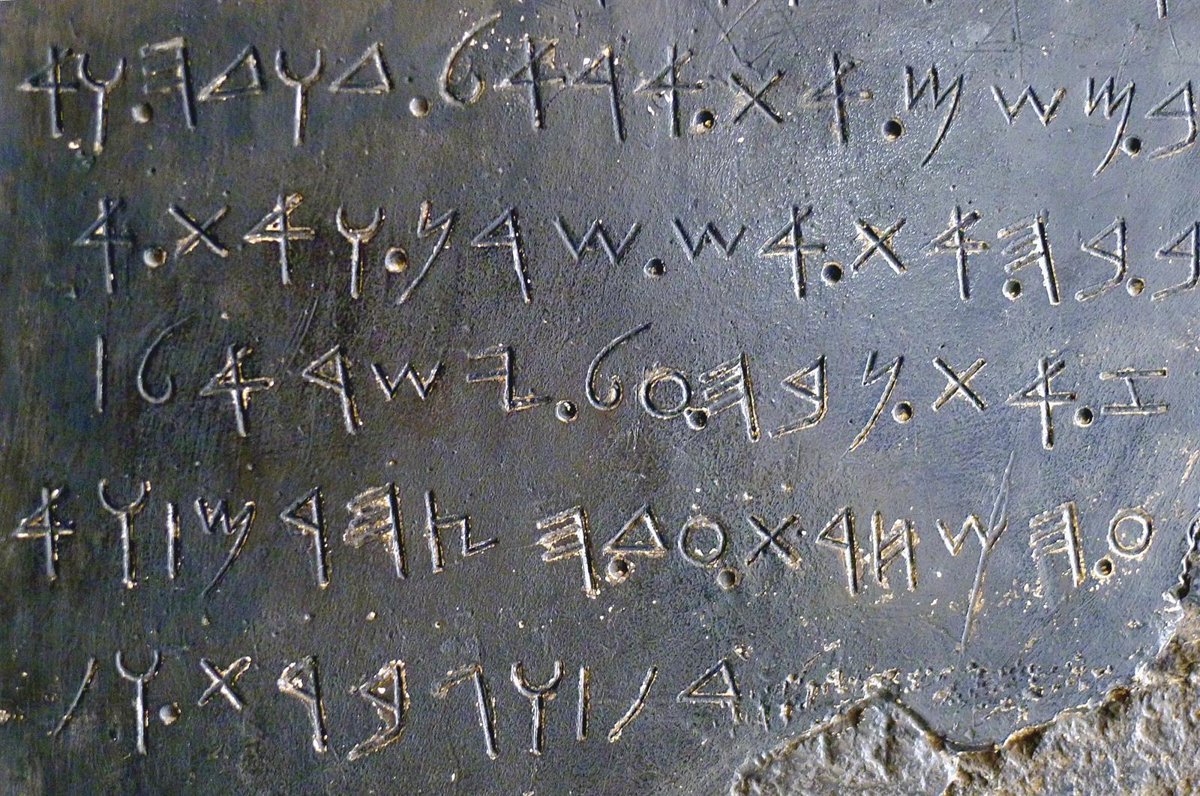 𐤁.𐤌𐤔𐤌.𐤀𐤕.𐤀𐤓𐤀𐤋.𐤃𐤅𐤃𐤄.𐤅𐤀
𐤁.𐤁𐤄.𐤀𐤕.𐤀𐤔.𐤔𐤓𐤍.𐤅𐤀𐤕.𐤀
𐤆.𐤀𐤕.𐤍𐤁𐤄.𐤏𐤋.𐤉𐤔𐤓𐤀𐤋|
𐤏.𐤄𐤔𐤇𐤓𐤕.𐤏𐤃.𐤄𐤑𐤄𐤓𐤌|𐤅𐤀
𐤓𐤍|𐤅𐤂𐤁𐤓𐤕.𐤅